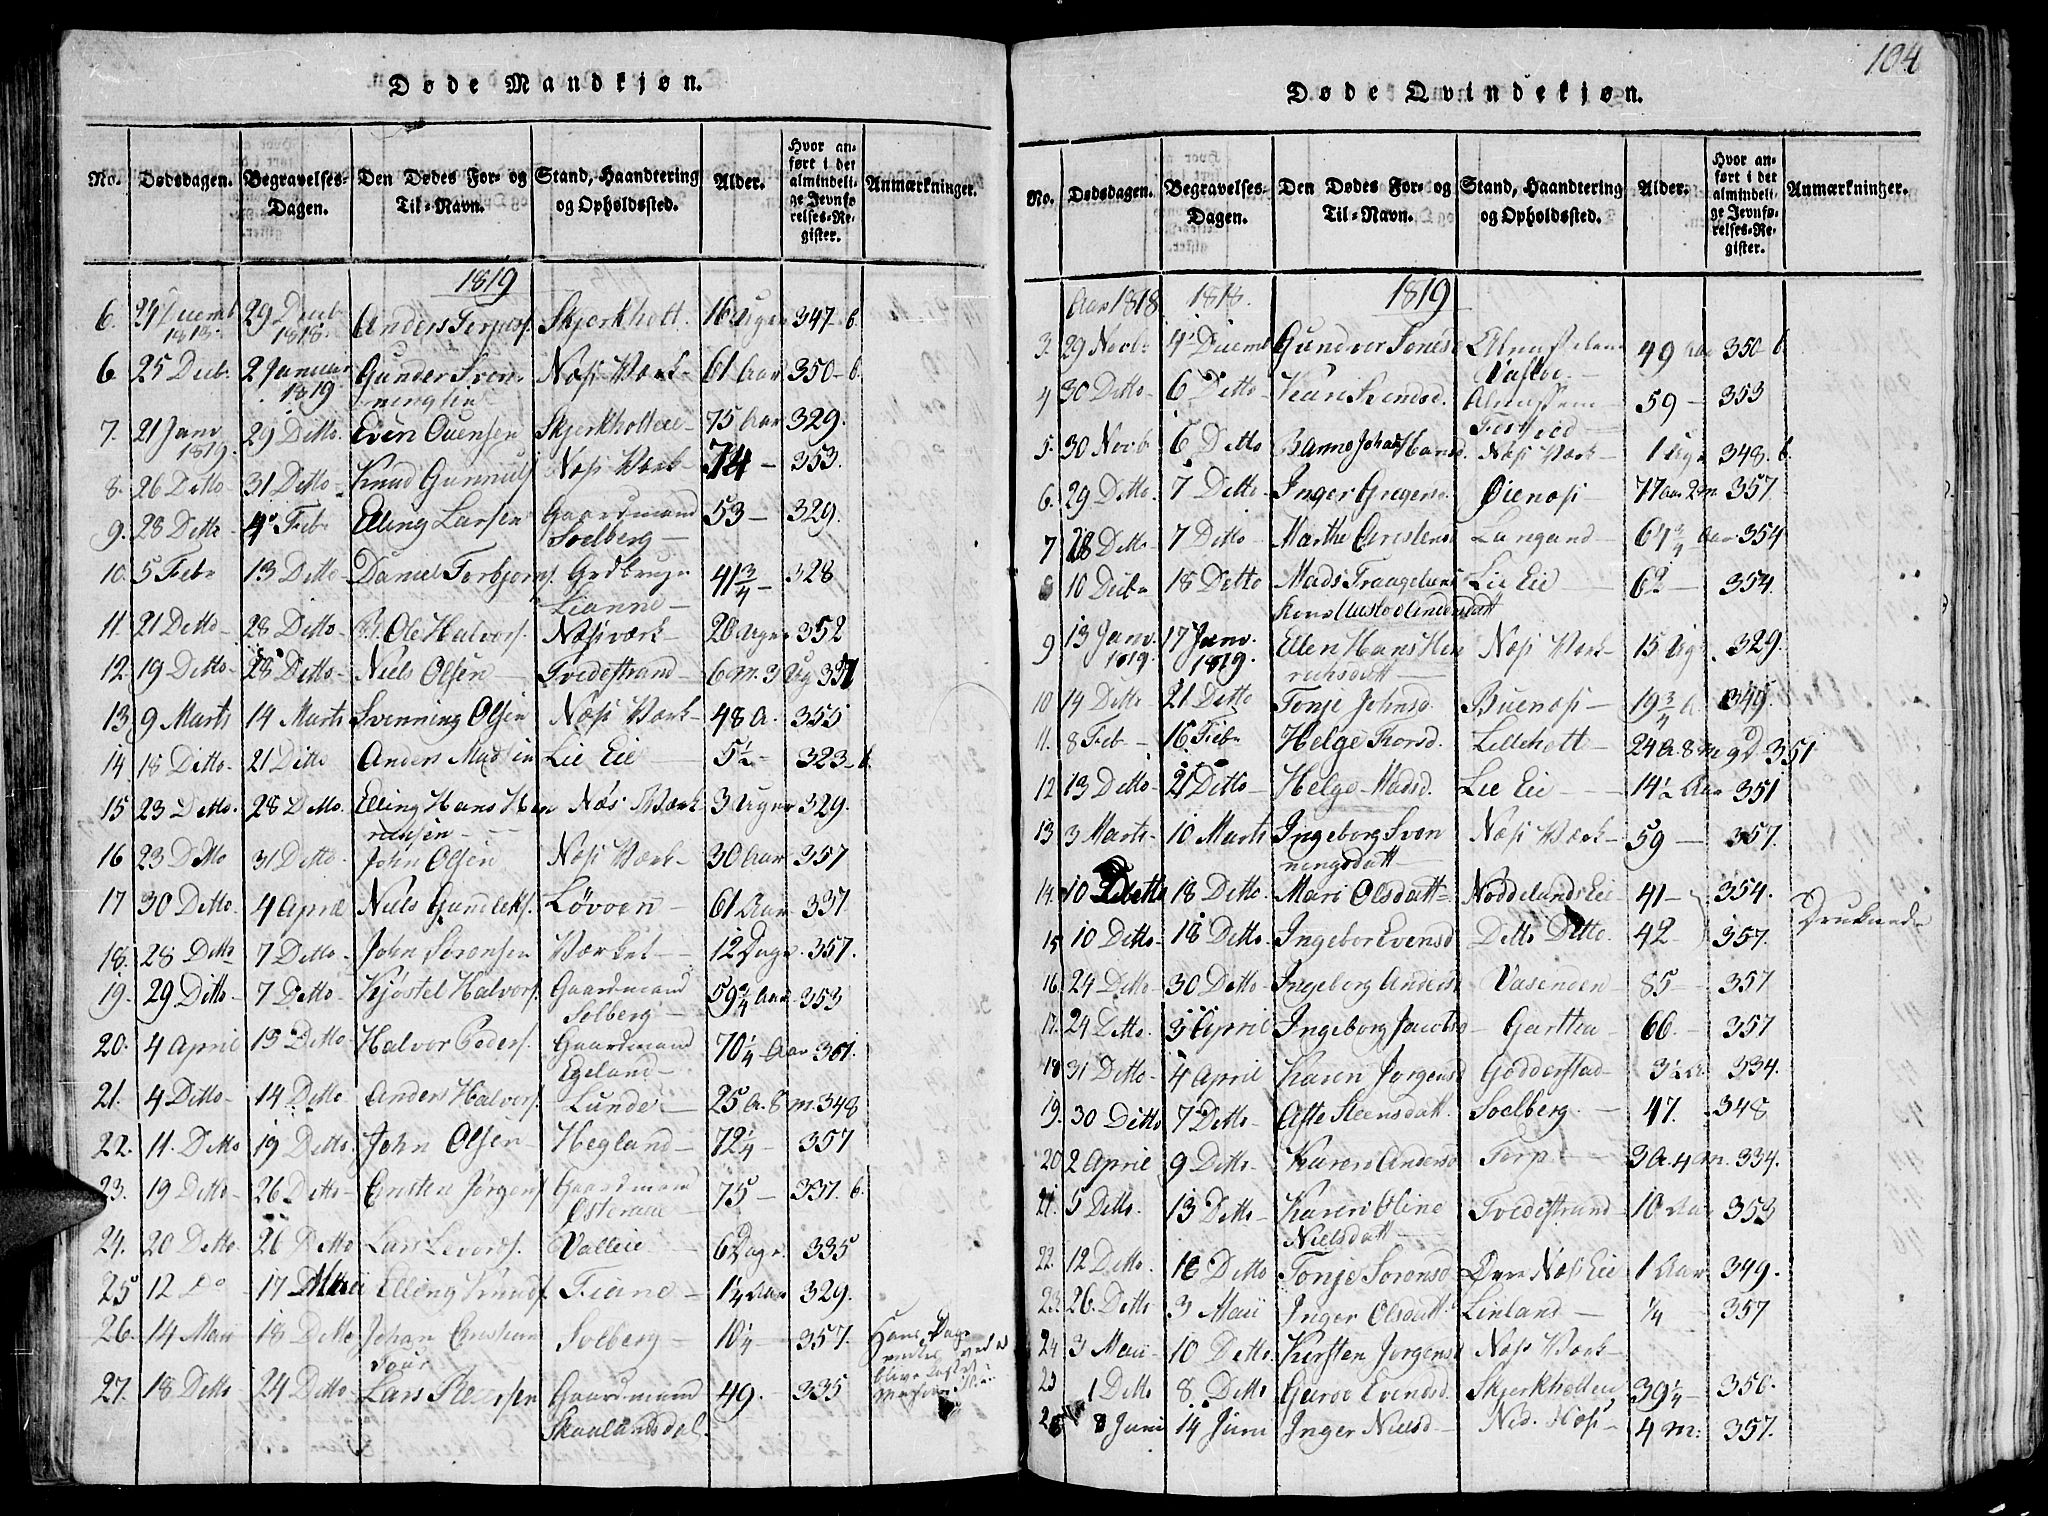 104
Døde Mandkjøn.
No. Dødsdagen. Begravelses-Dagen. Den Dødes For- og Til-Navn. Stand, Haandtering og Opholdssted. Alder. Hvor anført i det almindelige Jevnførelses-Register. Anmærkninger.
1819
6. 24 Decemb 1818. 29 Decb 1818. Anders Terjes. Skjerkholt. 16 Uger 347-b.
6 25 Decb. 2 Januar 1819 Gunder Svenningsen Næss Værk 61 Aar 350-b.
7. 21 Janv 1819. 29 Ditto. Even Evensen Skjerkholteie 75 Aar 329.
8. 26 Ditto 31 Ditto Knud Gunnuls. Næss Værk 74 - 353.
9. 28 Ditto 4 Feb Elling Larsen Gaardmand Solberg 53 - 329.
10. 5 Feb 13 Ditto Daniel Torbjørns. Lianne 41 3/4 - 328
11. 21 Ditto 28 Ditto B. Ole Halvors. Næssværk 20 Uger 352
12. 19 Ditto 28 Ditto Niels Olsen Tvedestrand 6 m. 3 Ug 351
13 9 Marts 14 Marts Svenning Olsen Næss Værk 48 A. 355
14 18 Ditto 21 Ditto Anders Madsen Lie Eie 5 1/2 - 323-b.
15 23 Ditto. 28 Ditto. Elling Hans Henrichsen Næs Værk 3 Uger 329.
16 23 Ditto 31 Ditto. John Olsen Næss Værk 30 Aar 357
17 30 Ditto. 4 April Niels Gundleks. Løvoen 61 Aar 337
18. 28 Ditto 7 Ditto John Sørensen Værket 12 Dage. 357.
19. 29 Ditto 7 Ditto Kjøstel Halvors. Gaardmand Solberg 59 3/4 Aar 353
20. 4 April 13 Ditto Halvor Peders. Gaardmand Egeland 70 1/4 Aar 361.
21. 4 Ditto 14 Ditto Anders Halvors. Lunde 25 A. 8 m. 348
22. 11. Ditto 19 Ditto. John Olsen Hegland 72 1/4 - 357
23. 19 Ditto 26 Ditto Christen Jørgens. Gaardmand 75 - 337. b.
24. 20 Ditto 26 Ditto Lars Levords. Valleie 6 Dage. 335
25 12 Do 17 Maii Elling Knuds. Fiane 1/4 Aar 329.
26. 14 Maii 18 Ditto Johan Solberg 10 1/4 - 357.
27. 18 Ditto 24 Ditto Lars Gaardmand Skaalandsdal. 49. - 335
Døde Qvindekjøn.
No. Dødsdagen. Begravelses-Dagen. Den Dødes For- og Til-Navn. Stand, Haandtering og Opholdssted. Alder. Hvor anført i det almindelige Jevnførelses-Register. Anmærkninger.
Aar 1818 1818. 1819
3. 29 Novb. 4 Decemb Gundvor Jonesd 49 Aar 350-b.
4 30 Ditto 6 Ditto Kari 59 - 353
5. 30 Novb 6 Ditto Næss Værk 1 Uge 348. b.
6. 29 Ditto. 7 Ditto Inger Gregersd. Øienæss 77 Aar 2 m 357
7 28 Ditto 7 Ditto Marthe Christensd Langand 64 3/4 Aar 354
8 10 Decb 18 Ditto Mads Lie Eie 62 - 354.
9 13 Janv. 1819. 17 Janv. 1819. Ellen Hans Henrichsdatt Næss Værk 15 Uger. 329.
10 14 Ditto 21 Ditto Tonje Johnsd. Buenæss 19 3/4 A. 349.
11. 8 Feb 16 Feb Helge Thorsd. Lilleholt 24 A. 8 m 9 D. 351
12 13 Ditto. 21 Ditto Helge Madsd. Lie Eie 14 1/2 Aar 351
13 3 Marts 10 Marts Ingeborg Svenningsdatt Næss Værk 59 - 357.
14. 10 Ditto 18 Ditto. Mari Olsdatt Nøddelands Eie 41 - 354.
15 10 Ditto. 18 Ditto. Ingebor Evensd Ditto Ditto. 42 - 357. Druknede
16. 24 Ditto 30 Ditto Ingeborg Andersd Vasenden 85 - 357
17. 24 Ditto. 3 April Ingeborg Jacobsd Garthen 66. - 357
18 31 Ditto 4 April Karen Jørgensd Godderstad 3 1/2 A 334.
19. 30 Ditto 7 Ditto. Aste Steensdatt. Solberg. 47. - 348
20 2 April 9 Ditto. Karen Andersd Torp 3 A. 4 m. 334.
21. 5 Ditto. 13 Ditto Karen Oline Nielsdatt Tvedestrand 10 Aar 353
22. 12 Ditto. 16 Ditto Tonje Sørensd. Øvre Næss Eie 1 Aar 349.
23. 26. Ditto 3 Maii Inger Olsdatt. Linland 1/4 - 357
24 3 Maii 10 Ditto. Kirsten Jørgensd Næss Værk
25 1 Ditto 8. Ditto Guroe Evensd. Skjerkholten 39 1/4 - 350.
26 8 Juni 14 Juni Inger Nielsd Ned. Næss 4 m. 357.